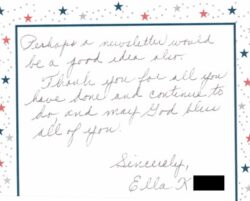 Perhaps a newsletter would
be a good idea also.
Thank you for all you
have done and continue to
do and may God bless
all of you.
Sincerely,
Ella K